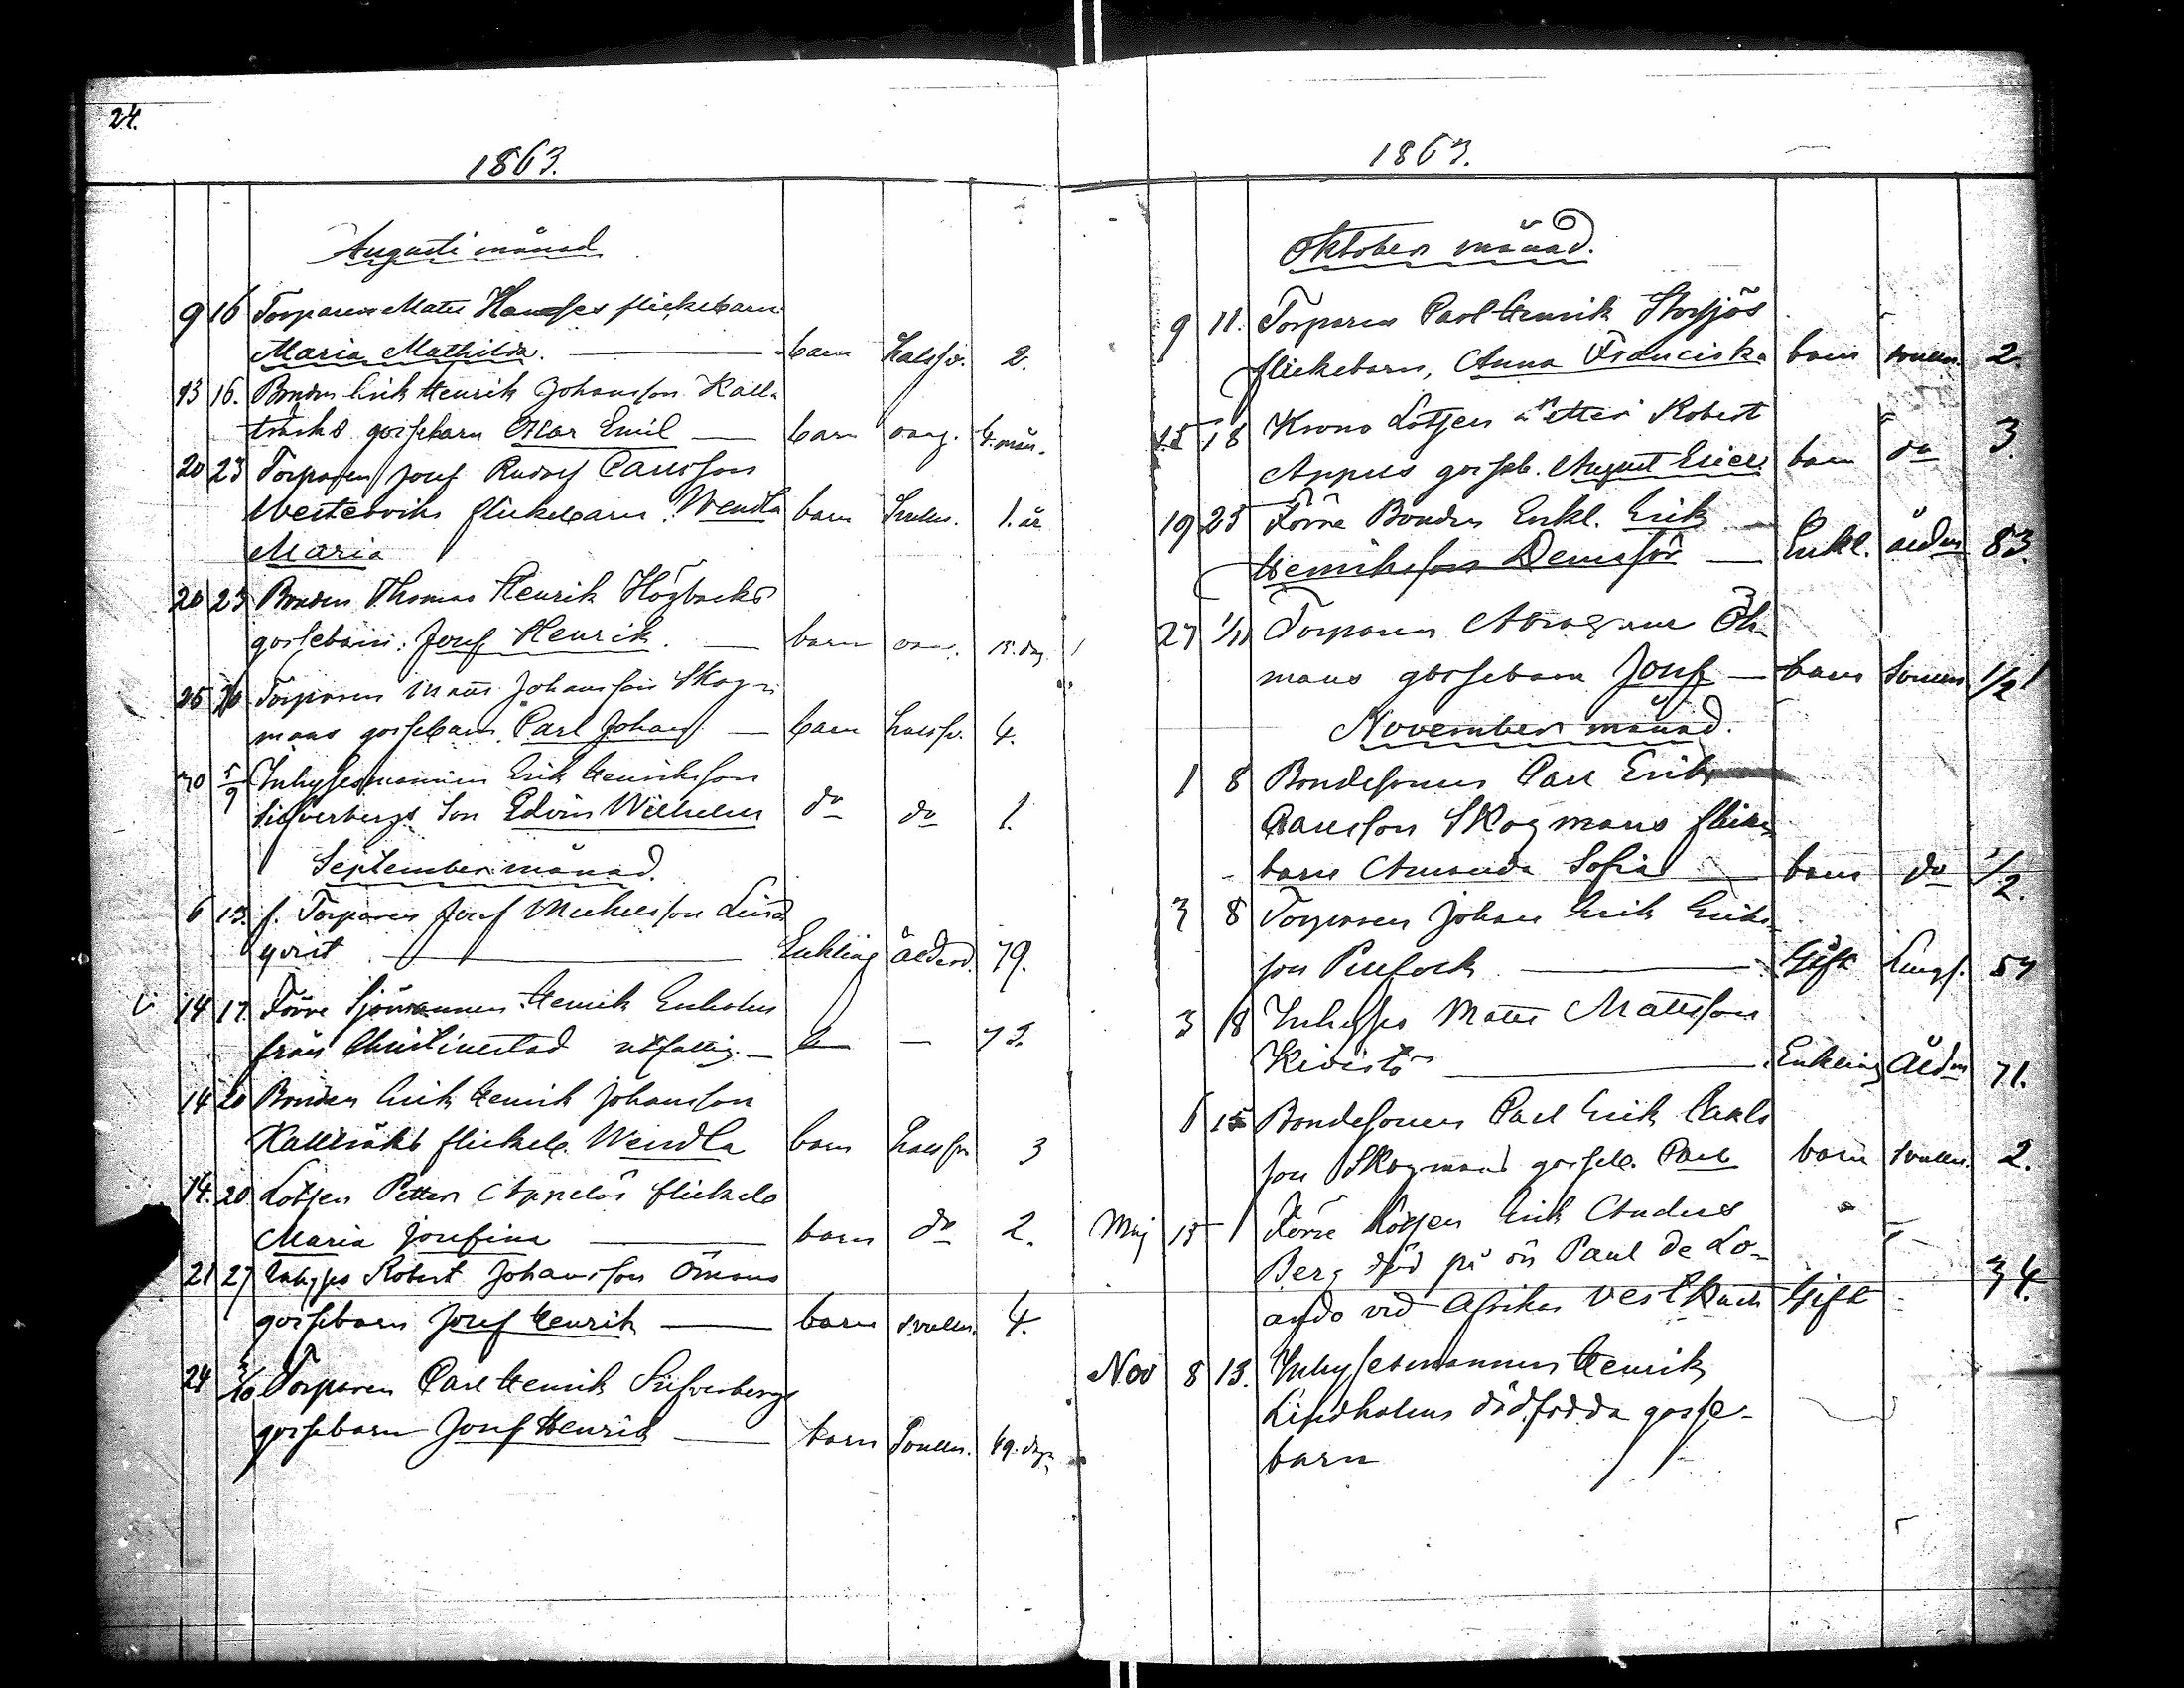 24.
1863.
Augusti månad
9 16 Torparen Matts flickebarn
Maria Mathilda. barn halssv. 2.
13 16. Bonden Erik Henrik Johansson Kall-
träsks gossebarn Oskar Emil barn 4. mån.
20 23 Torparen Josef Rudolf Carlsson
Westerviks flickebarn. Wendla barn 1. år
Maria
20 23 Bonden Thomas Henrik Högbacks
gossebarn: Josef Henrik. barn 15. dag
25 26 Torparen Matts Johansson Skog-
mans gossebarn Carl Johan barn halssv. 4.
30 5/9 Inhysesmannen Erik Henriksson
Silfverbergs son Edvin Wilhelm do do 1.
September månad.
6 13. f. Torparen Josef Mickelsson Lind
qvist Enkling Ålderd. 79.
14 17. Förre Sjömannen Henrik Enholm
från Christinestad utfattig.
14 20 Bonden Erik Henrik Johansson
Kallträsks flickeb. Wendla barn halssv 3
14. 20 Lotsen Petter Appelös flickeb
Maria Josefina barn do 2.
21 27 Inhyses Robert Johansson Ömans
gossebarn Josef Henrik barn svulln. 4.
24 3/10 Torparen Carl Henrik Silfverbergs
gossebarn Josef Henrik barn Svulln. 49. dagr
1863.
Oktober månad.
9 11. Torparen Carl Henrik Storsjös
flickebarn, Anna Franciska barn svulln. 2.
15 18 Krono Lotsen Robert
gosseb. August barn do 3.
19 25 Förre Bonden Enkl. Erik
Henriksson Enkl. ålderd 83.
27 1/11 Torparen Öh-
mans gossebarn Josef barn Svulln 1/2
November månad.
1 8 Bondesonen Carl Erik
Carlsson Skogmans flicke
barn Amanda Sofia barn do 1/2.
3 8 Torparen Johan Erik Eriks-
son Gift Lungs. 57
3 18 Inhyses Matts Mattsson
Kivistö Enkling Åld 71.
6 15 Bondesonen Carl Erik Carls
son Skogmans gosseb. Carl barn svulln. 2.
Maj 15 Förre Lotsen Erik Anders
Berg död på ön Paul de Lo-
ando vid Afrikas Vestkust Gift 34.
Nov 8 13. Inhysesmannen Henrik
Lindholms dödfödda gosse-
barn